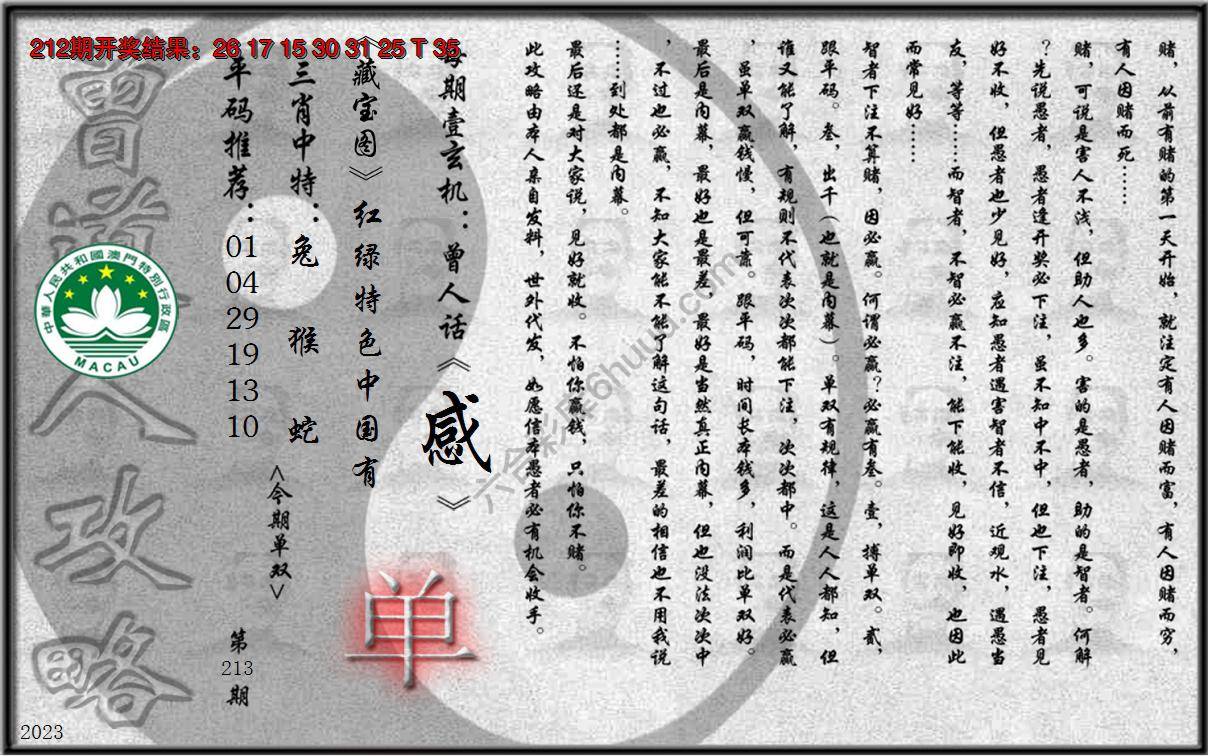 212期开奖结果：26 17 15 30 31 25 T 35
赌，从前有赌的第一天开始，就注定有人因赌而富，有人因赌而穷，
有人因赌而死……
赌，可说是害人不浅，但助人也多。害的是愚者，助的是智者。何解
？先说愚者，愚者逢开奖必下注，虽不知中不中，但也下注，愚者见
好不收，但愚者也少见好，应知愚者遇害智者不信，近观水，遇愚当
友，等等……而智者，不智必赢不注，能下能收，见好即收，也因此
而常见好……
智者下注不算赌，因必赢。何谓必赢？必赢有叁。壹，搏单双。贰，
跟平码。叁，出千（也就是内幕）。单双有规律，这是人人都知，但
谁又能了解，有规则不代表次次都能下注，次次都中。而是代表必赢
，虽单双赢钱慢，但可靠。跟平码，时间长本钱多，利润比单双好。
最后是内幕，最好也是最差，最好是当然真正内幕，但也没法次次中
，不过也必赢，不知大家能不能了解这句话，最差的相信也不用我说
……到处都是内幕。
最后还是对大家说，见好就收。不怕你赢钱，只怕你不赌。
此攻略由本人亲自发料，世外代发，如愿信本愚者必有机会收手。
每期壹玄机：曾人话《感》
《藏宝图》红绿特色中国有
单
三肖中特：兔 猴 蛇
<今期单双>
平码推荐：01 04 29 19 13 10
第213期
曾道人攻略
中華人民共和國澳門特別行政區
MACAU
六合彩库6huuu.com
2023